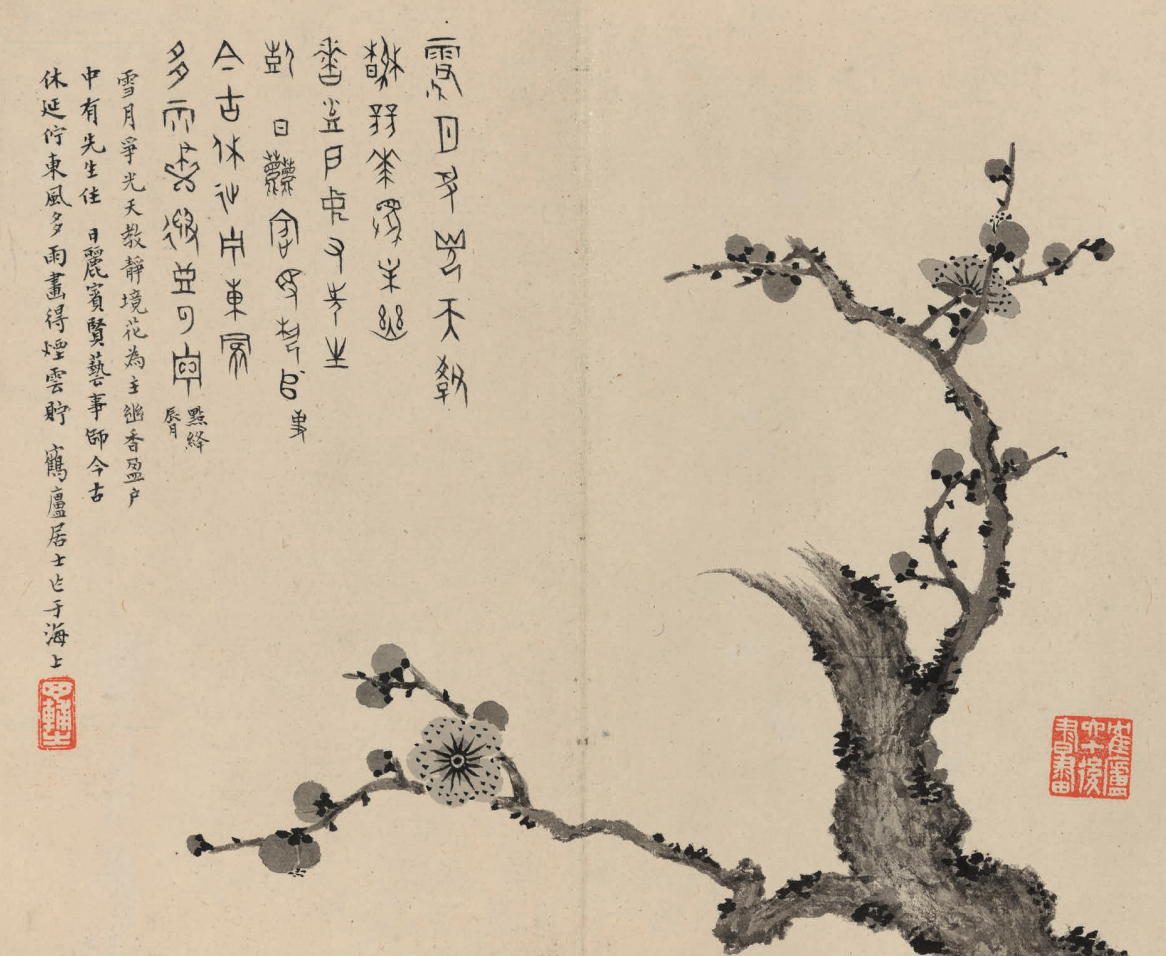 雪月爭光天教
靜境花為主幽
香盈戶中有先生
住 日麗賓賢藝師事
今古休延佇東風
多雨畫得煙雲貯
點絳
脣
雪月爭光天教靜境花為主幽香盈戶
中有先生住 日麗賓賢藝事師今古
休延佇東風多雨畫得煙雲貯 鶴廬居士乍于海上
隺廬
六十後
書畫